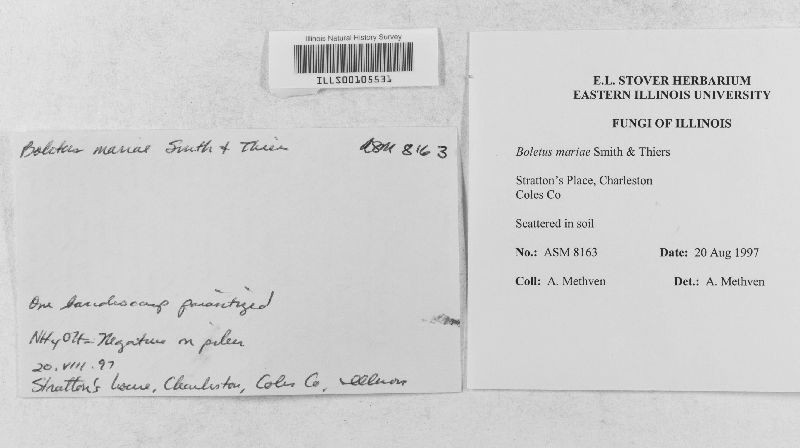 Illinois Natural History Survey
ILLS00105531
Boletus mariae Smith & Thiers
ASM 8163
One basidiocarp parasitized
NH4OH = Negative on pileus
20.VIII.97
Stratton's house, Charleston, Coles Co, Illinois
E.L. STOVER HERBARIUM
EASTERN ILLINOIS UNIVERSITY
FUNGI OF ILLINOIS
Boletus mariae Smith & Thiers
Stratton's Place, Charleston
Coles Co
Scattered in soil
No.: ASM 8163 Date: 20 Aug 1997
Coll: A. Methven Det.: A. Methven